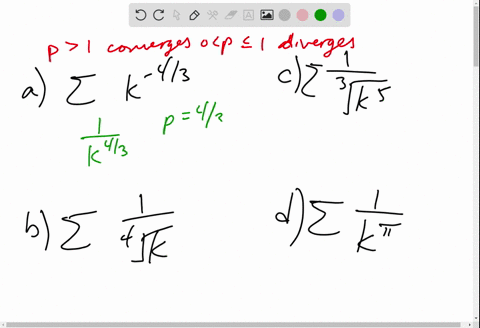 p > 1 converges 0<p ≤ 1 diverges
a) Σ k^{-4/3}
1/k^{4/3} p = 4/3
b) Σ 1/⁴√k
c) Σ 1/³√k⁵
d) Σ 1/k^π